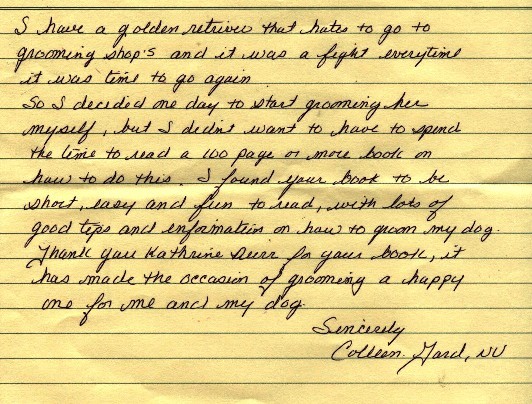 I have a golden retriever that hates to go to
grooming shop's and it was a fight everytime
it was time to go again
So I decided one day to start grooming her
myself, but I didn't want to have to spend
the time to read a 100 page or more book on
how to do this. I found your book to be
short, easy and fun to read, with lots of
good tips and information on how to groom my dog.
Thank you Kathrine for your book, it
has made the occasion of grooming a happy
one for me and my dog.
Sincerely
Colleen Gard, NV